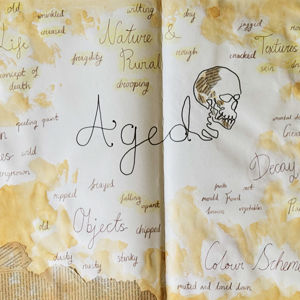 old
wrinkled
creased
Life
concept of
death
Nature &
Rural
wilting
dry
fragility
rough
drooping
jagged
cracked
Textures
skin
Aged
peeling paint
wild
overgrown
ripped
frayed
falling
apart
Objects
chipped
old
dusty
rusty
stinky
Decay
fruits
rot
mould
Food
flowers
vegetables
Colour Scheme
muted and toned down